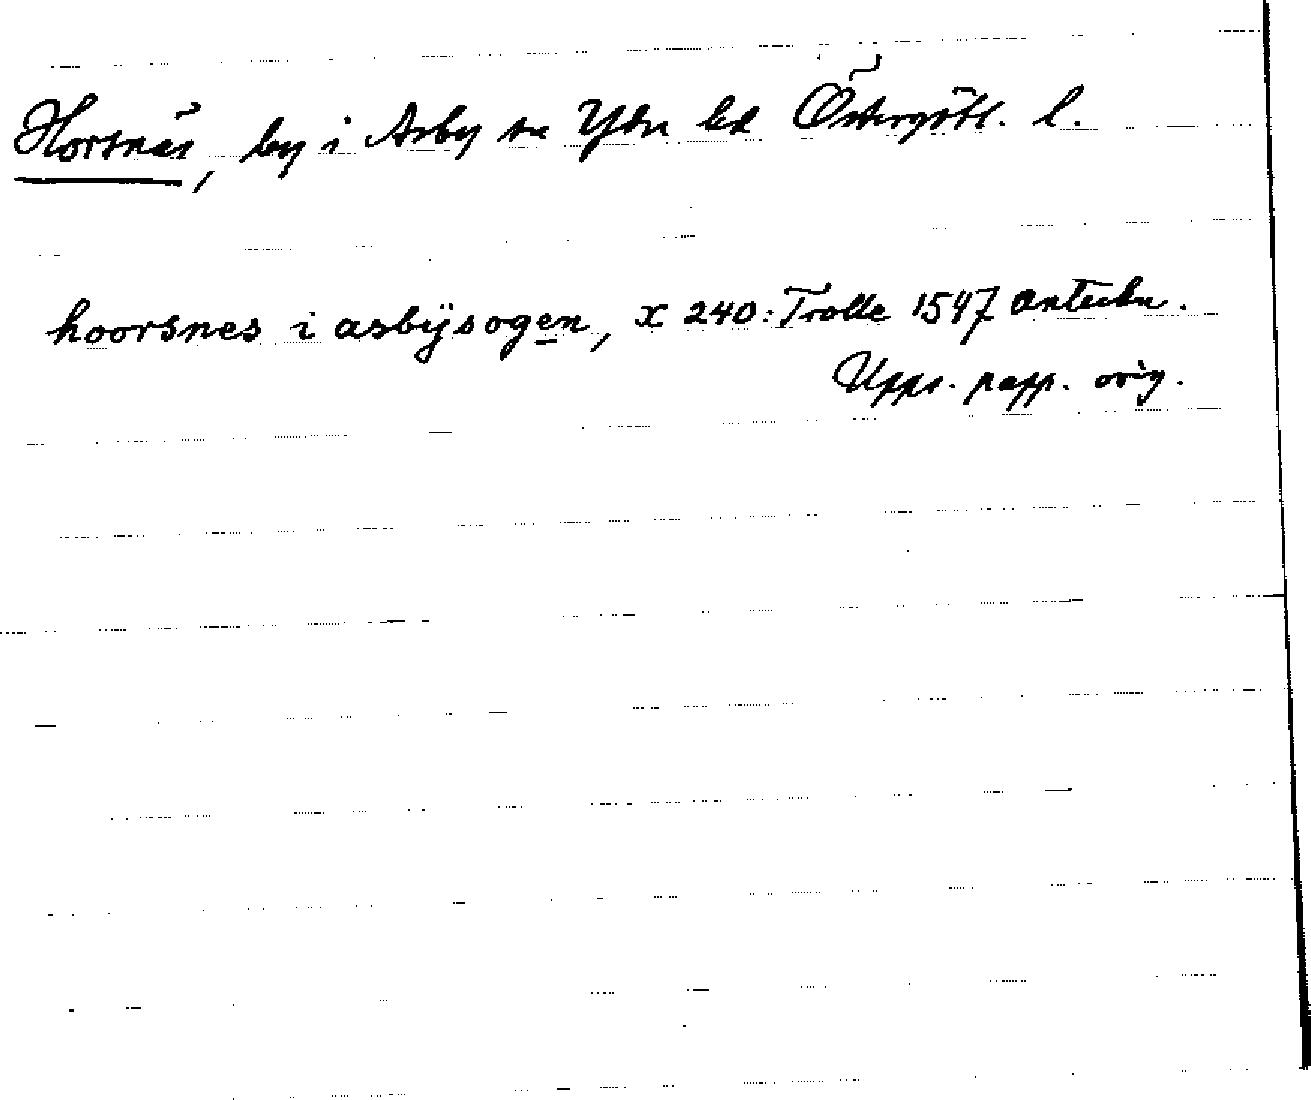 Horsnäs, by i Asby sn Ydre hd Östergötl. l.
hoorsnes i asbÿsogen, x 240: Trolle 1547 anteckn.
Upps. papp. orig.